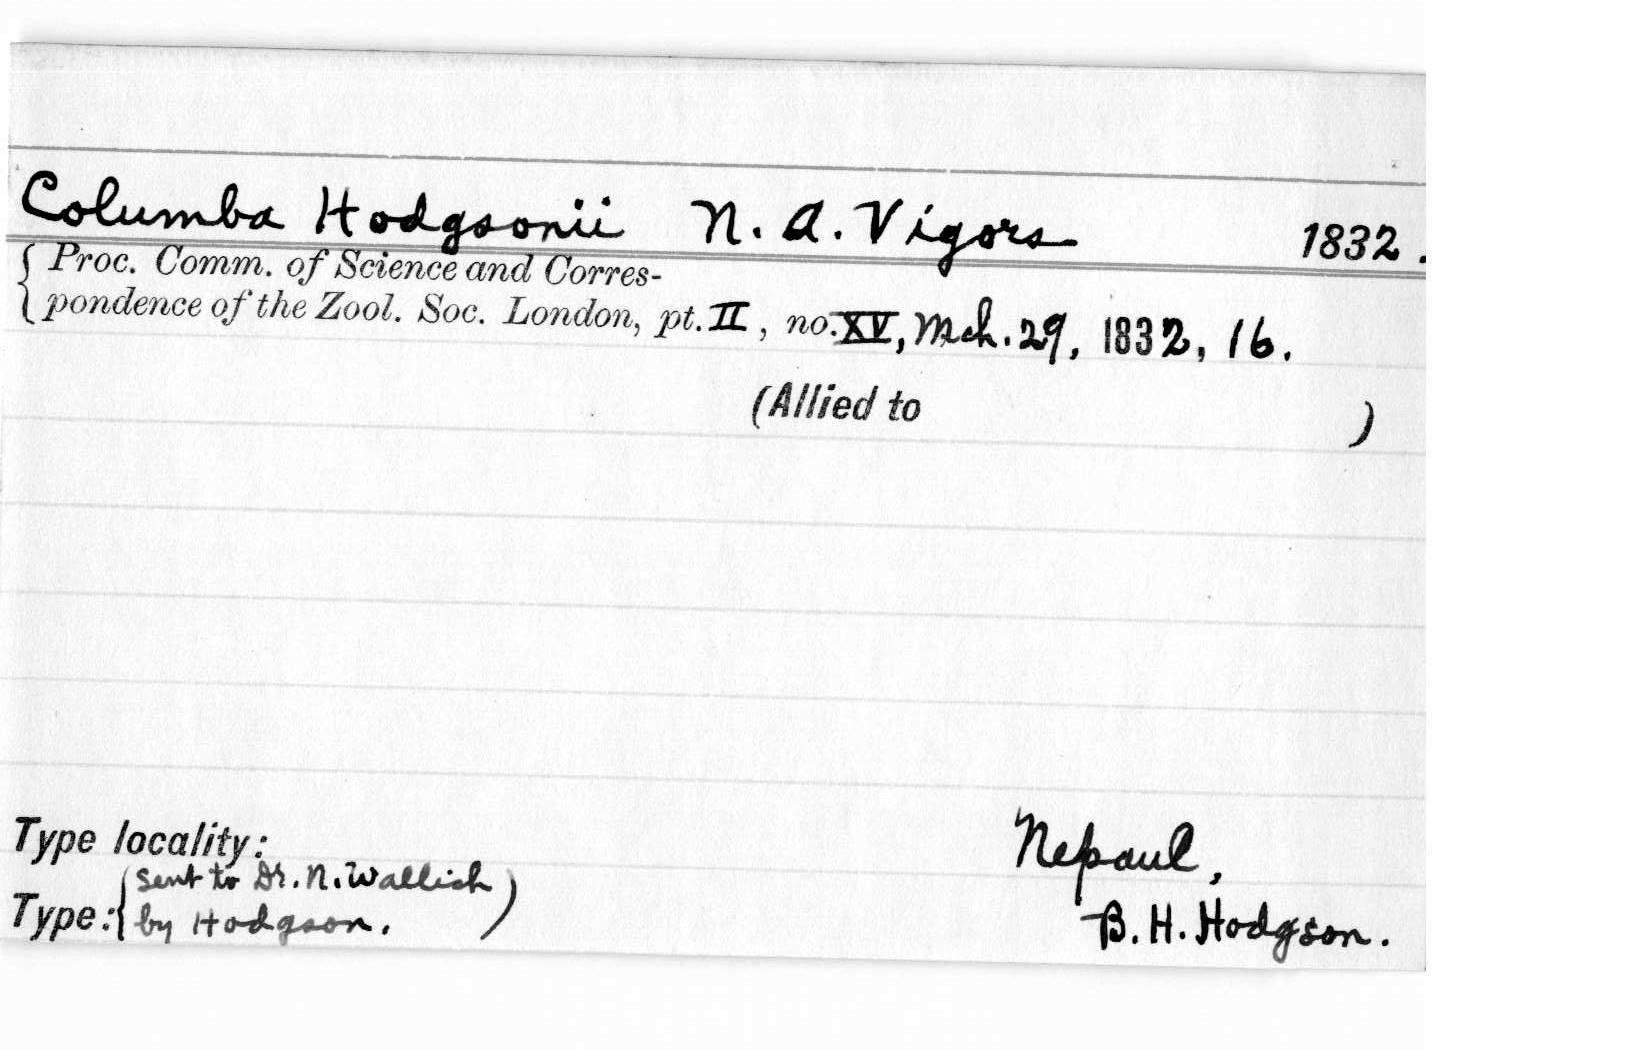 Columba Hodgsonii N. A. Vigors 1832.
Proc. Comm. of Science and Corres-
pondence of the Zool. Soc. London, pt. II, no. XV, Mch. 29, 1832, 16.
(Allied to )
Type locality: Nepaul,
(sent to Dr. N. Wallich
Type: by Hodgson.) B. H. Hodgson.